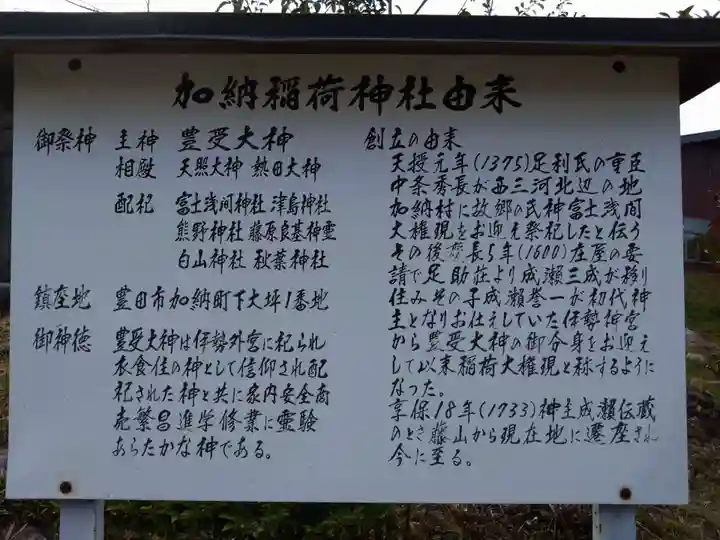 加納稲荷神社由来
御祭神 主神 豊受大神
相殿 天照大神 熱田大神
配祀 富士浅間神社 津島神社
熊野神社 藤原良基神霊
白山神社 秋葉神社
鎮座地 豊田市加納町下大坪1番地
御神徳 豊受大神は伊勢外宮に祀られ
衣食住の神として信仰され配
祀された神と共に家内安全商
売繁昌進学修業に霊験
あらたかな神である。
創立の由来
天授元年(1375)足利氏の重臣
中条秀長が西三河北辺の地
加納村に故郷の氏神富士浅間
大権現をお迎え祭祀したと伝う
その後慶長5年(1600)庄屋の要
請で足助荘より成瀬三成が移り
住みその子成瀬誉一が初代神
主となりお仕えしていた伊勢神宮
から豊受大神の御分身をお迎え
して以来稲荷大権現と称するように
なった。
享保18年(1733)神主成瀬伝蔵
のとき藤山から現在地に遷座され
今に至る。